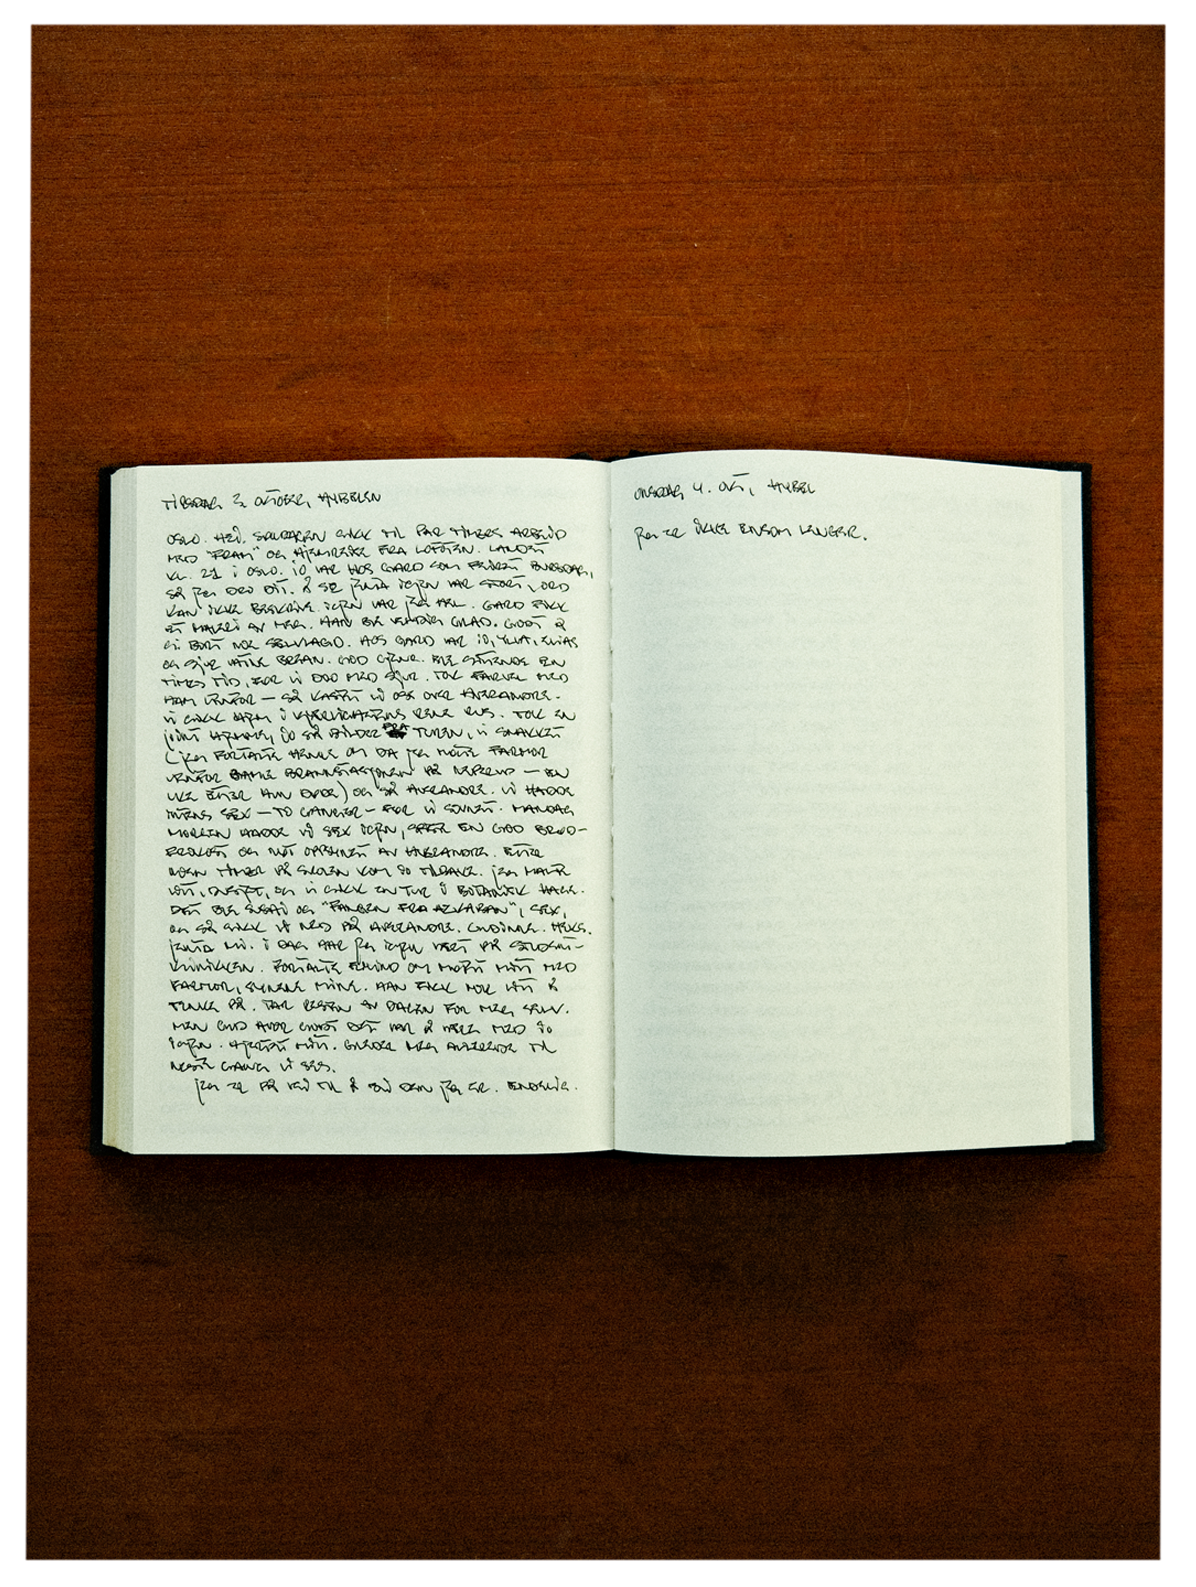 TIRSDAG 3. OKTOBER, HYBELEN
OSLO. HEI. SØNDAGEN GIKK TIL PAR TIMERS ARBEID
MED "FRAM" OG HJEMREISE FRA LOFOTEN. LANDET
KL. 21 I OSLO. IO VAR HOS GARD SOM FEIRET BURSDAG,
SÅ JEG DRO DIT. Å SE JENTA IGJEN VAR STORT, ORD
KAN IKKE BESKRIVE. IGJEN VAR JEG HEL. GARD FIKK
ET MALERI AV MEG. HAN BLE VELDIG GLAD. GODT Å
GI BORT NOE SELVLAGD. HOS GARD VAR IO, YLVA, ELIAS
OG SJUR BREAN. GOD GJENG. BLE SITTENDE EN
TIMES TID, FØR VI DRO MED SJUR. TOK FARVEL MED
HAM UTENFOR — SÅ KASTET VI OSS OVER HVERANDRE.
VI GIKK HJEM I KJÆRLIGHETENS RENE RUS. TOK EN
JOINT HJEMME, IO SÅ BILDER FRA TUREN, VI SNAKKET
(JEG FORTALTE HENNE OM DA JEG MØTTE FARMOR
UTENFOR GAMLE BRANNSTASJONEN PÅ — EN
UKE ETTER HUN DØDE) OG SÅ HVERANDRE. VI HADDE
INTENS SEX — TO GANGER — FØR VI SOVNET. MANDAG
MORGEN HADDE VI SEX IGJEN, SPISTE EN GOD BRØD-
FROKOST OG NØT OPPSYNET AV HVERANDRE. ETTER
NOEN TIMER PÅ SKOLEN KOM IO TILBAKE. JEG HADDE
LITT, OG VI GIKK EN TUR I BOTANISK HAGE.
DET BLE SUSHI OG "FANGEN FRA AZKABAN", SEX,
OG SÅ GIKK VI NED PÅ HVERANDRE. GUDINNE. HEKS.
JENTA MI. I DAG HAR JEG IGJEN VÆRT PÅ STUDENT-
KLINIKKEN. FORTALTE OM MØTET MITT MED
FARMOR, SYNENE MINE. HAN FIKK NOK LITT Å
TENKE PÅ. TAR RESTEN AV DAGEN FOR MEG SELV.
MEN GUD HVOR GODT DET VAR Å VÆRE MED IO
IGJEN. HJERTET MITT. GLEDER MEG ALLEREDE TIL
NESTE GANG VI SES.
JEG ER PÅ VEI TIL Å BLI DEN JEG ER. ENDELIG.
ONSDAG 4. OKT, HYBEL
JEG ER IKKE ENSOM LENGER.